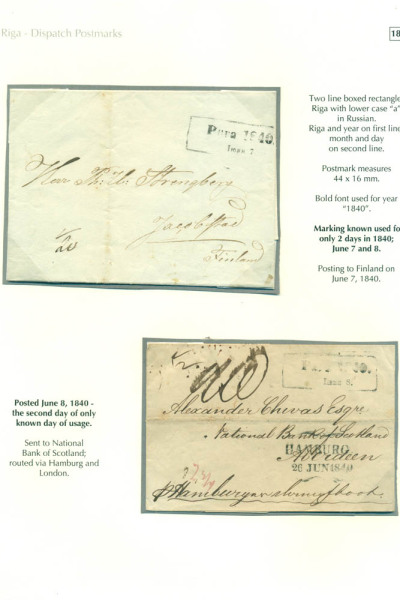 Riga - Dispatch Postmarks
18
Two line boxed rectangle
Riga with lower case "a"
in Russian.
Riga and year on first line
month and day
on second line.
Postmark measures
44 x 16 mm.
Bold font used for year
"1840".
Marking known used fo
only 2 days in 1840;
June 7 and 8.
Posting to Finland on
June 7, 1840.
Рига 1840.
Іюня 7
Herr
Strengberg
Jacobstad
Finland
Posted June 8, 1840 -
the second day of only
known day of usage.
Sent to National
Bank of Scotland;
routed via Hamburg and
London.
Іюня 8.
Alexander Chivas Esqre
National Bank of Scotland
Aberdeen
HAMBURG
26 JUN 1840